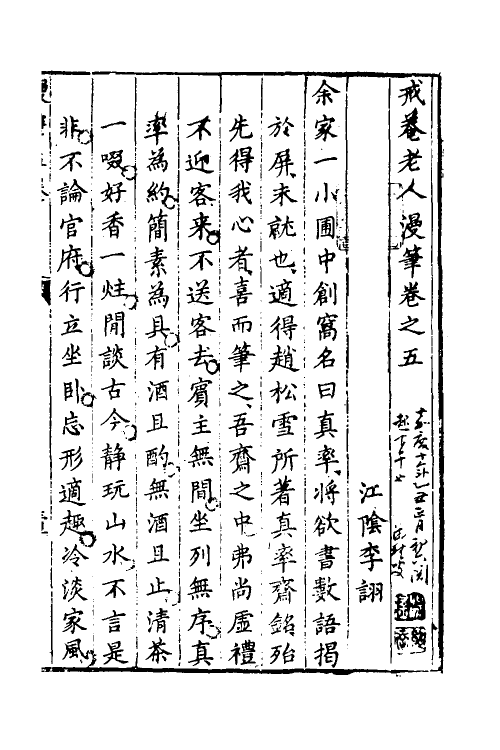 戒菴老人漫筆卷之五
江陰李詡
余家一小圃中創窩名曰真率將欲書數語揭
於屏未就也適得趙松雪所著真率齋銘殆
先得我心者喜而筆之吾齋之中弗尚虛禮
不迎客來不送客去賓主無間坐列無序真
率為約簡素為具有酒且酌無酒且止清茶
一啜好香一炷閒談古今靜玩山水不言是
非不論官府行立坐卧忘形適趣冷淡家風